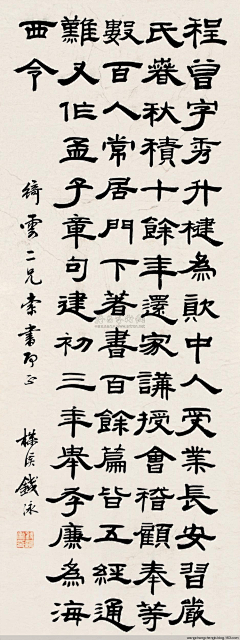 程曾字秀升楗為歟中人受業長安習嚴
氏春秋積十餘年還家講授會稽顧奉等
數百人常居門下著書百餘篇皆五經通
難又作孟子章句建初三年舉孝廉為海
西令
綺雲二兄索書即正
楳溪錢泳